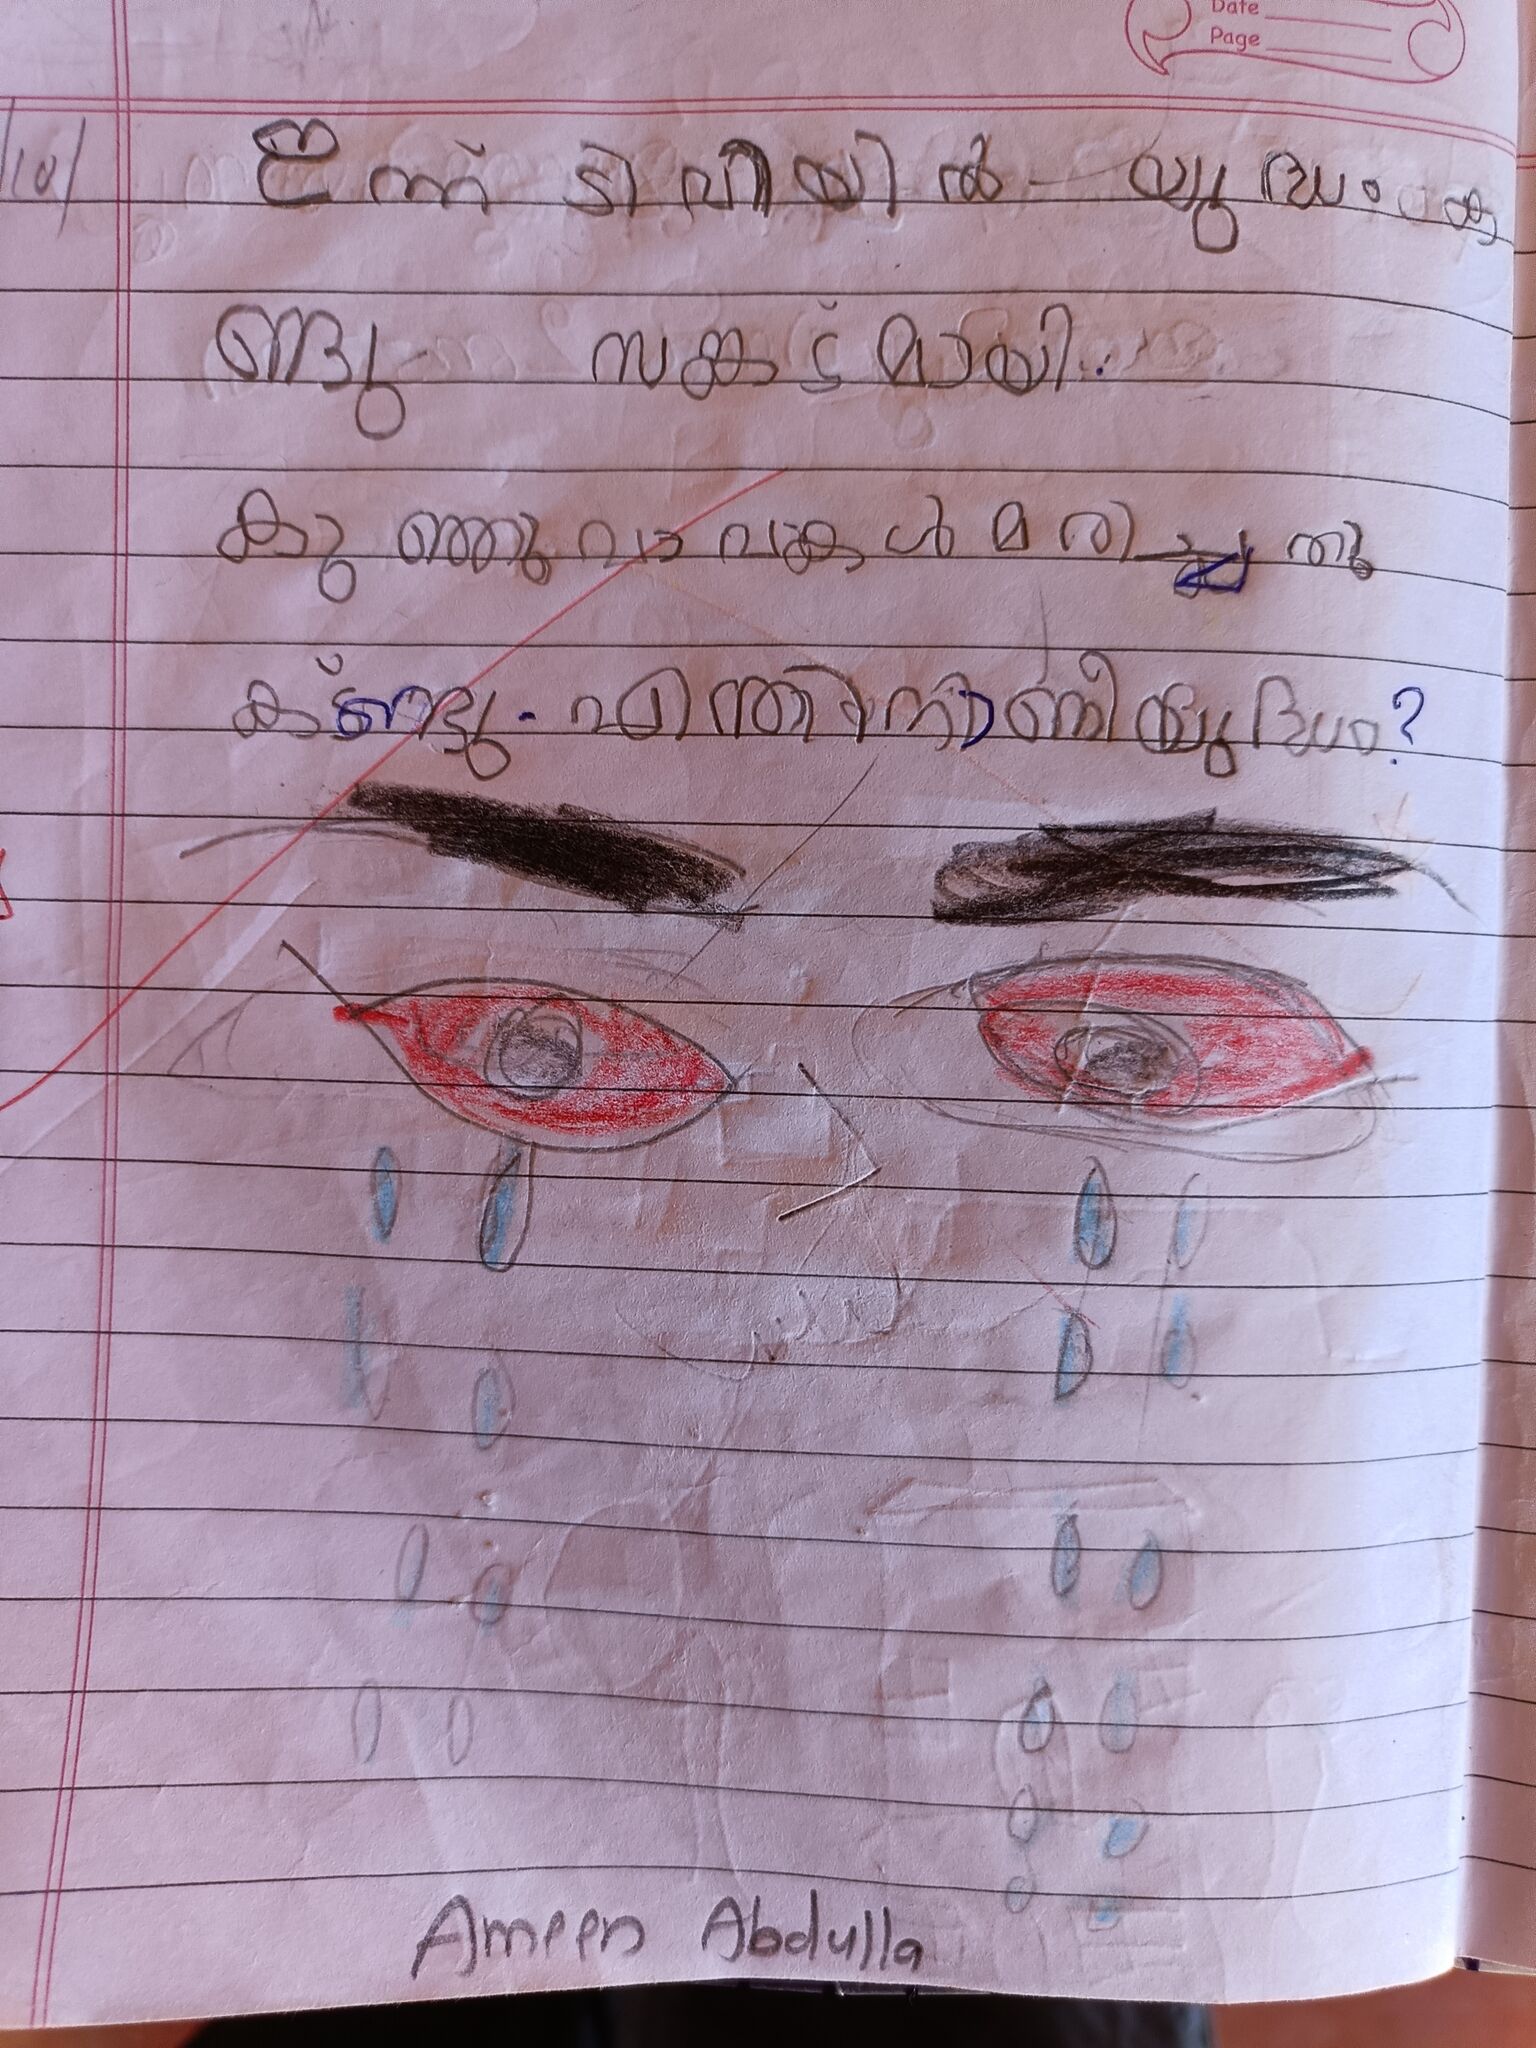 Date
Page
10/
ഇന്ന് ടിവിയിൽ യുദ്ധം ക
ണ്ടു സങ്കടമായി.
കുഞ്ഞുവാവകൾ മരിച്ചതു
കണ്ടു. എന്തിനാണീ യുദ്ധം?
Ameen Abdulla